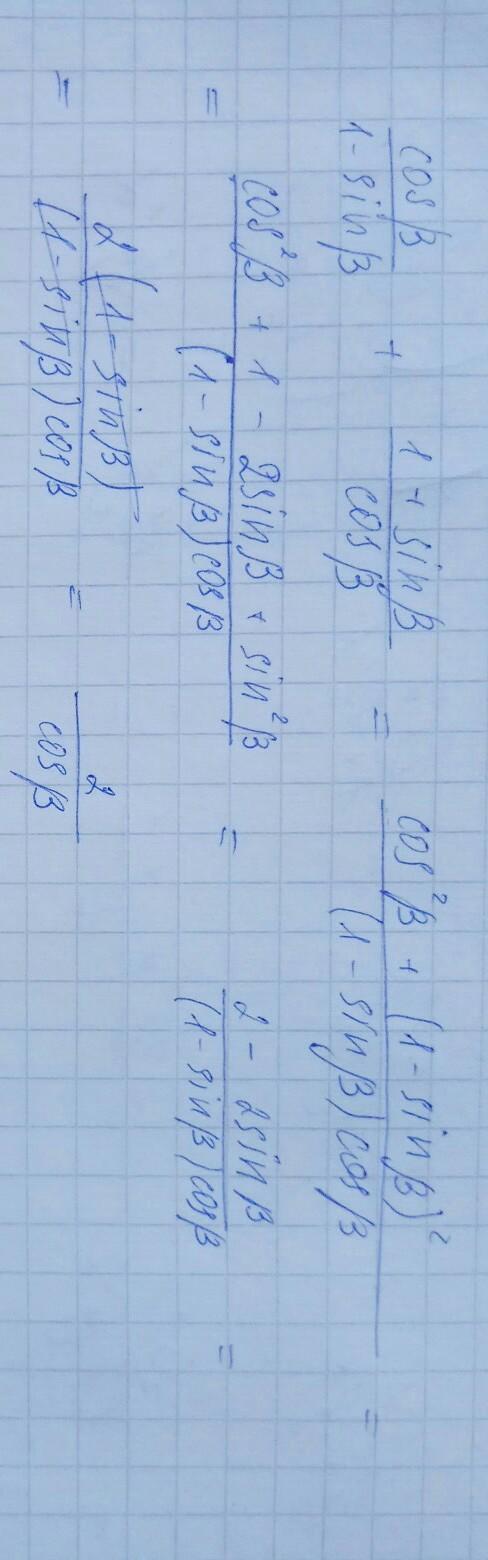 cosβ/(1 - sinβ) + (1 + sinβ)/cosβ = (cos²β + (1 - sinβ)²)/((1 - sinβ)cosβ) =
= (cos²β + 1 - 2sinβ + sin²β)/((1 - sinβ)cosβ) = (2 - 2sinβ)/((1 - sinβ)cosβ) =
= 2(1 - sinβ)/((1 - sinβ)cosβ) = 2/cosβ